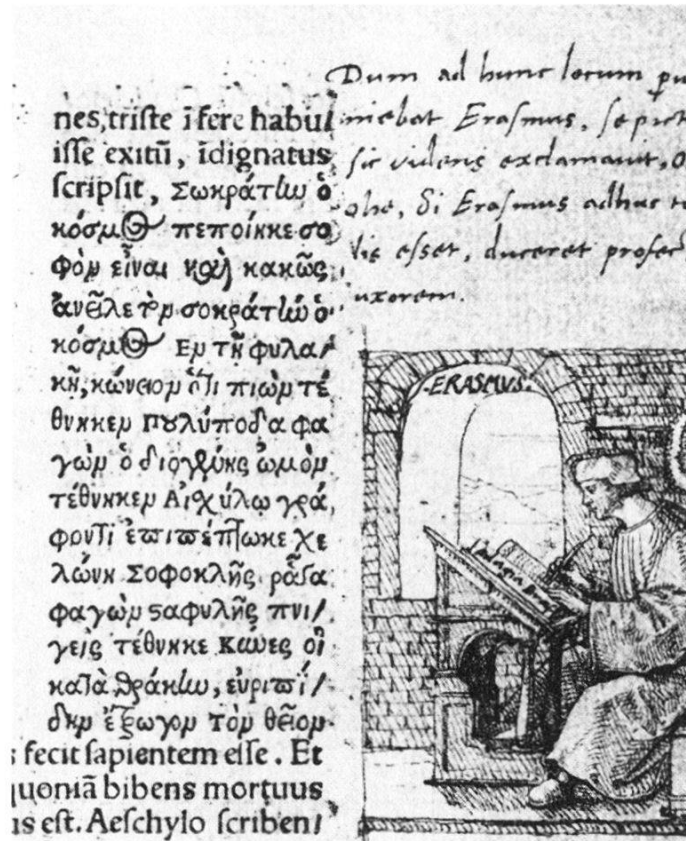 nes, triste ĩ fere habu/
isse exitũ, ĩdignatus
scripsit, Σωκράτην ὁ
κόσμος πεποίηκε σο
φὸν εἶναι καὶ κακῶς
ἀνεῖλε τὸν σοκράτην ὁ
κόσμος Εν τῇ φυλα/
κῇ, κώνειον ὅτι πιὼν τέ
θνηκεν Πουλύποδα φα
γὼν ὁ διογένης ὠμὸν
τέθνηκεν Αἰσχύλῳ γρά
φοντι ἐπιπέπτωκε χε
λώνη Σοφοκλῆς ῥᾶγα
φαγὼν σταφυλῆς πνι/
γεὶς τέθνηκε Κύνες οἱ
κατὰ θράκην, εὐριπί/
δην ἔτρωγον τὸν θεῖον
s fecit sapientem esse. Et
quoniã bibens mortuus
us est. Aeschylo scriben/
Dum ad hunc locum
niebat Erasmus, se pict
sic videns exclamauit, o
ohe, si Erasmus adhuc
lis esset, duceret profec
uxorem.
ERASMUS.